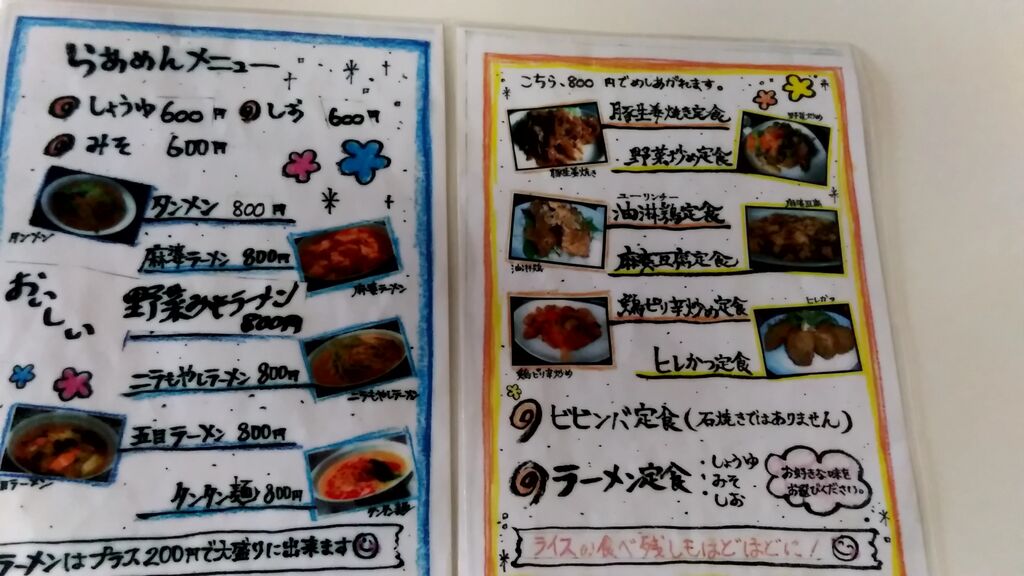 らあめんメニュー
しょうゆ 600円 しお 600円
みそ 600円
タンメン 800円
タンメン
麻婆ラーメン 800円
麻婆ラーメン
おいしい
野菜みそラーメン
800円
ニラもやしラーメン 800円
ニラもやしラーメン
五目ラーメン 800円
目ラーメン
タンタン麺 800円
タンタン麺
ラーメンはプラス200円で大盛りに出来ます
こちら、800円でめしあがれます。
豚生姜焼き定食
豚生姜焼き
野菜炒め
野菜炒め定食
ユーリンチー
油淋鶏定食
油淋鶏
麻婆豆腐
麻婆豆腐定食
鶏ピリ辛炒め定食
鶏ピリ辛炒め
ヒレかつ
ヒレかつ定食
ビビンバ定食(石焼きではありません)
ラーメン定食
・しょうゆ
・みそ
・しお
お好きな味を
お選びください。
ライスの食べ残しもほどほどに!